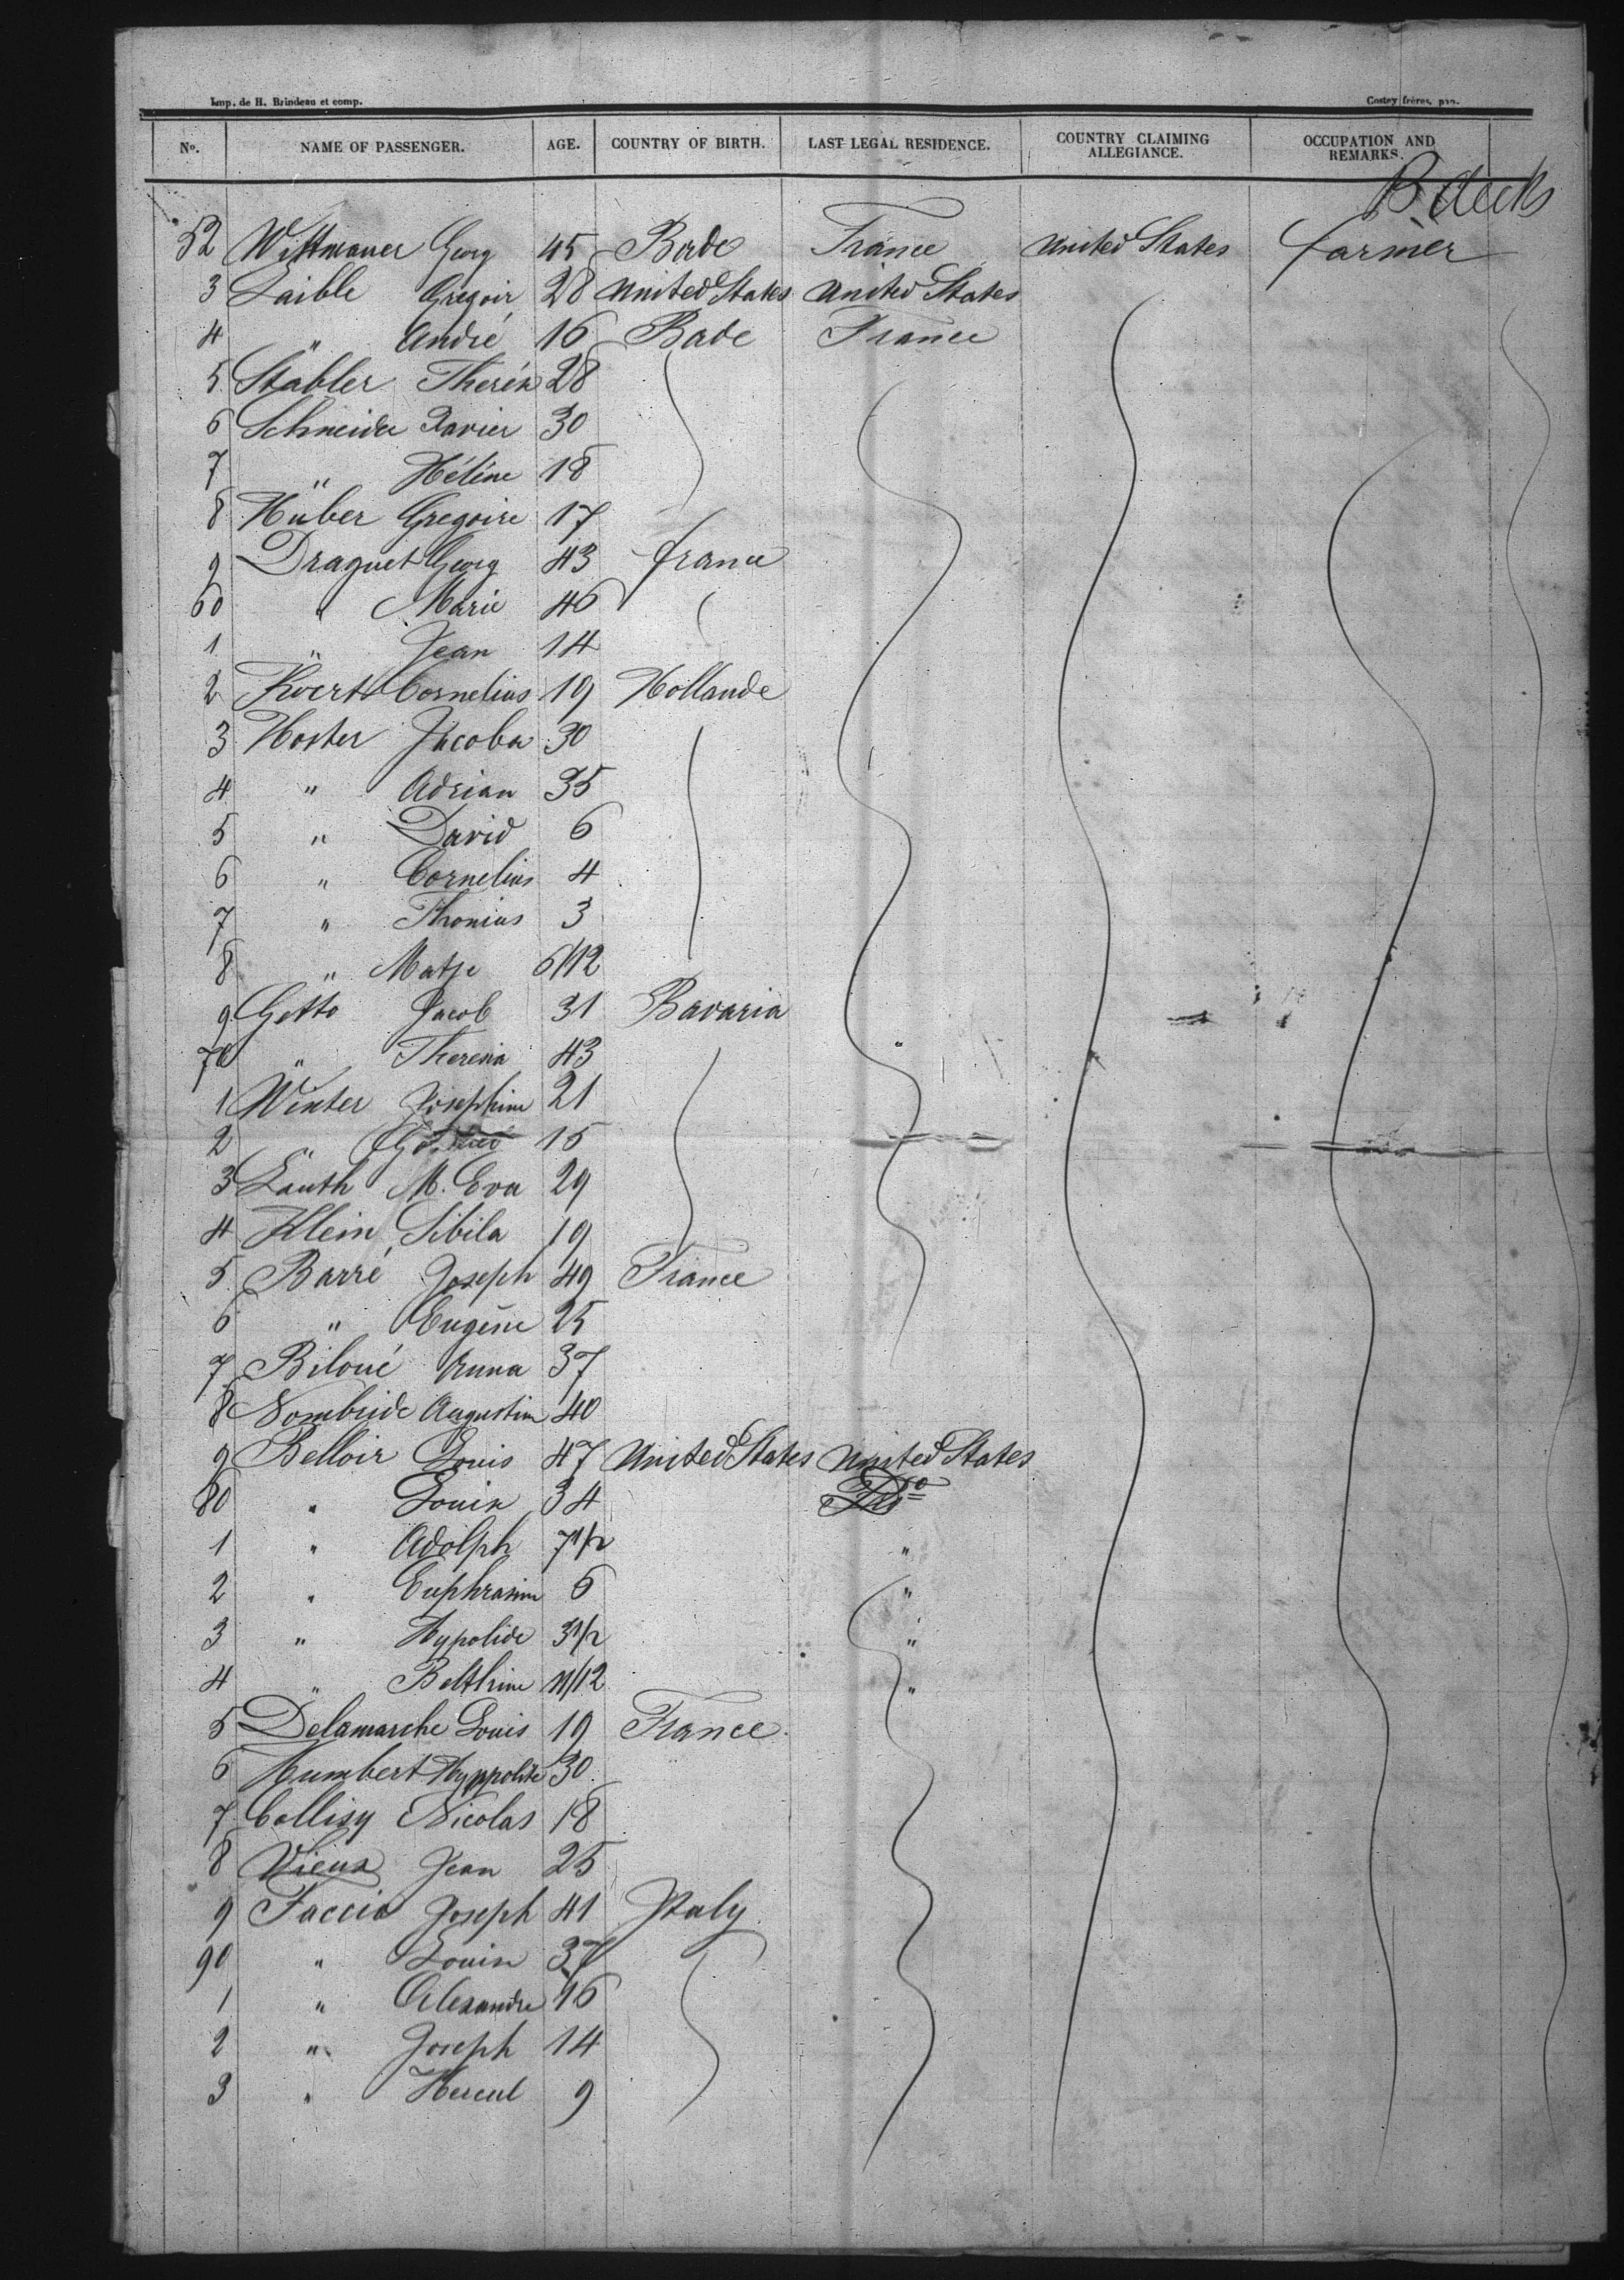 Imp. de H. Brindeau et comp. Costey frères, pro.
No. NAME OF PASSENGER. AGE. COUNTRY OF BIRTH. LAST LEGAL RESIDENCE. COUNTRY CLAIMING ALLEGIANCE. OCCUPATION AND REMARKS.
B. decks
52 Wittmauer Georg 45 Bade France United States farmer
3 Laible Gregoir 28 United States United States
4 " André 16 Bade France
5 Stabler 28
6 Schneider Xavier 30
7 " Héléne 18
8 Huber Gregoire 17
9 Draguet Georg 43 france
60 " Marie 46
1 " Jean 14
2 Cornelius 19 Hollande
3 Hoster Jacoba 30
4 " Adrian 35
5 " David 6
6 " Cornelius 4
7 " Thonius 3
8 " Matje 6/12
9 Getto Jacob 31 Bavaria
70 " Theresia 43
1 Winter Josephine 21
2 " 15
3 Lauth M. Eva 29
4 Klein Sibila 19
5 Barré Joseph 49 France
6 " Eugéne 25
7 Biloué Anna 37
8 Augustin 40
9 Belloir Louis 47 United States United States
80 " 34 Do
1 " Adolph 7 1/2 "
2 " Euphrasine 6 "
3 " Hypolide 3 1/2 "
4 " 11/12 "
5 Delamarche Louis 19 France
6 Humbert Hyppolite 30
7 Collisy Nicolas 18
8 Vieux Jean 25
9 Faccio Joseph 41 Italy
90 " 37
1 " Alexandre 16
2 " Joseph 14
3 " Hercul 9